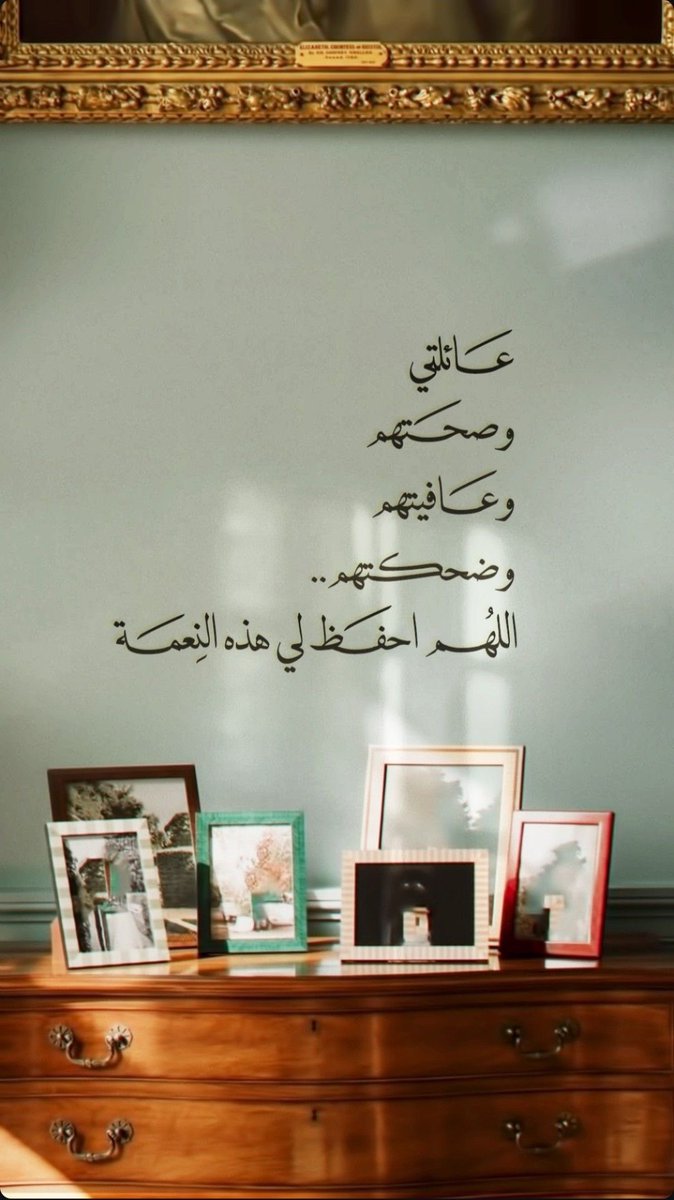 ELIZABETH, COUNTESS of
عَائلتي
وصحَتهم
وعَافيتهم
وضحكتهم..
اللهُم احفَظ لي هذه النِعمَة